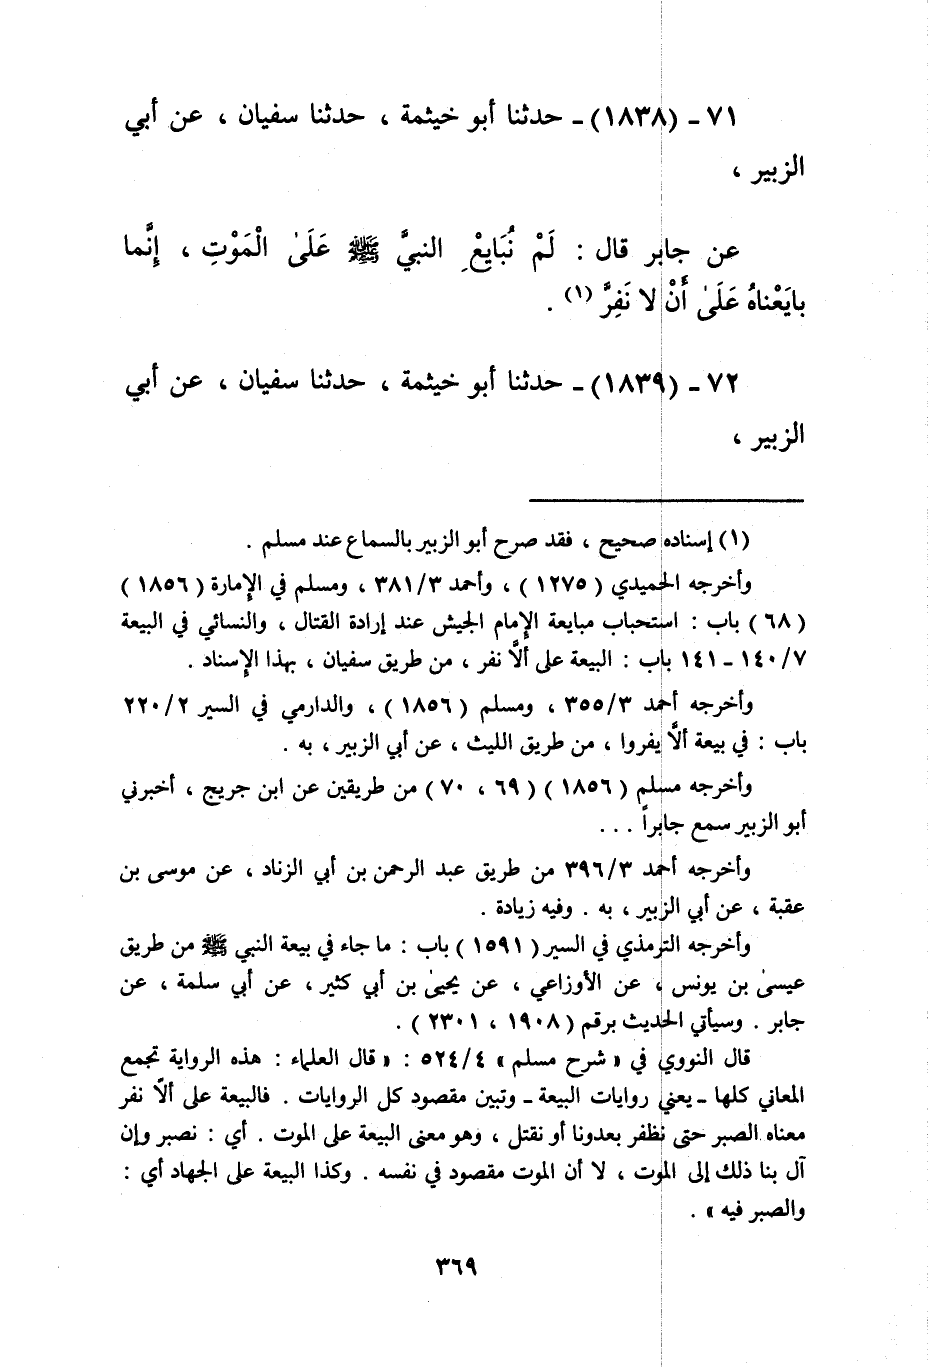 ٧١ - (١٨٣٨) - حدثنا أبو خيثمة ، حدثنا سفيان ، عن أبي
الزبير ،
عن جابر قال : لَمْ نُبَايِعْ النبيَّ ﷺ عَلَىٰ الْمَوْتِ ، إِنَّما
بايَعْناهُ عَلَىٰ أَنْ لا نَفِرَّ (١) .
٧٢ - (١٨٣٩) - حدثنا أبو خيثمة ، حدثنا سفيان ، عن أبي
الزبير ،
(١) إسناده صحيح ، فقد صرح أبو الزبير بالسماع عند مسلم .
وأخرجه الحميدي ( ١٢٧٥ ) ، وأحمد ٣٨١/٣ ، ومسلم في الإمارة ( ١٨٥٦ )
( ٦٨ ) باب : استحباب مبايعة الإمام الجيش عند إرادة القتال ، والنسائي في البيعة
١٤٠/٧ - ١٤١ باب : البيعة على ألاَّ نفر ، من طريق سفيان ، بهذا الإسناد .
وأخرجه أحمد ٣٥٥/٣ ، ومسلم ( ١٨٥٦ ) ، والدارمي في السير ٢٢٠/٢
باب : في بيعة ألاَّ يفروا ، من طريق الليث ، عن أبي الزبير ، به .
وأخرجه مسلم ( ١٨٥٦ ) ( ٦٩ ، ٧٠ ) من طريقين عن ابن جريج ، أخبرني
أبو الزبير سمع جابراً . . .
وأخرجه أحمد ٣٩٦/٣ من طريق عبد الرحمن بن أبي الزناد ، عن موسى بن
عقبة ، عن أبي الزبير ، به . وفيه زيادة .
وأخرجه الترمذي في السير ( ١٥٩١ ) باب : ما جاء في بيعة النبي ﷺ من طريق
عيسىٰ بن يونس ، عن الأوزاعي ، عن يحيىٰ بن أبي كثير ، عن أبي سلمة ، عن
جابر . وسيأتي الحديث برقم ( ١٩٠٨ ، ٢٣٠١ ) .
قال النووي في « شرح مسلم » ٥٢٤/٤ : « قال العلماء : هذه الرواية تجمع
المعاني كلها - يعني روايات البيعة - وتبين مقصود كل الروايات . فالبيعة على ألاّ نفر
معناه الصبر حتى نظفر بعدونا أو نقتل ، وهو معنى البيعة على الموت . أي : نصبر وإن
آل بنا ذلك إلى الموت ، لا أن الموت مقصود في نفسه . وكذا البيعة على الجهاد أي :
والصبر فيه » .
٣٦٩